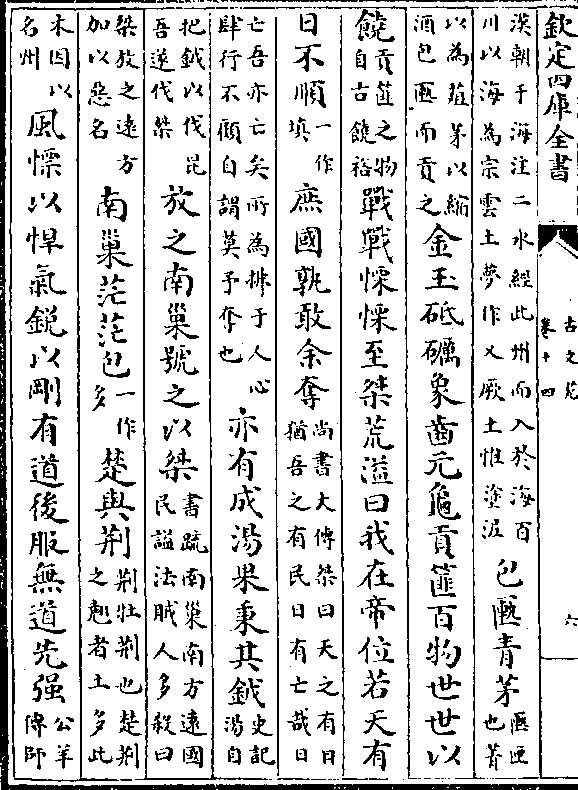 欽定四庫全書
古文苑
卷十四
六
漢朝于海注二水經此州而入於海百
川以海為宗雲土夢作乂厥土惟塗泥
包匭青茅
匭匣
也菁
以為葅茅以縮
酒包匭而貢之
金玉砥礪象齒元龜貢篚百物世世以
饒
貢篚之物
自古饒裕
戰戰慄慄至桀荒溢曰我在帝位若天有
日不順
一作
填
庶國孰敢余奪
尚書大傳桀曰天之有日
猶吾之有民日有亡哉日
亡吾亦亡矣所為拂于人心
肆行不顧自謂莫予奪也
亦有成湯果秉其鉞
史記
湯自
把鉞以伐昆
吾遂伐桀
放之南巢號之以桀
書疏南巢南方遠國
民謚法賊人多殺曰
桀放之遠方
加以惡名
南巢茫茫包
一作
多
楚與荆
荆牡荆也楚荆
之翹者土多此
木因以
名州
風慄以悍氣銳以剛有道後服無道先强
公羊
傳師